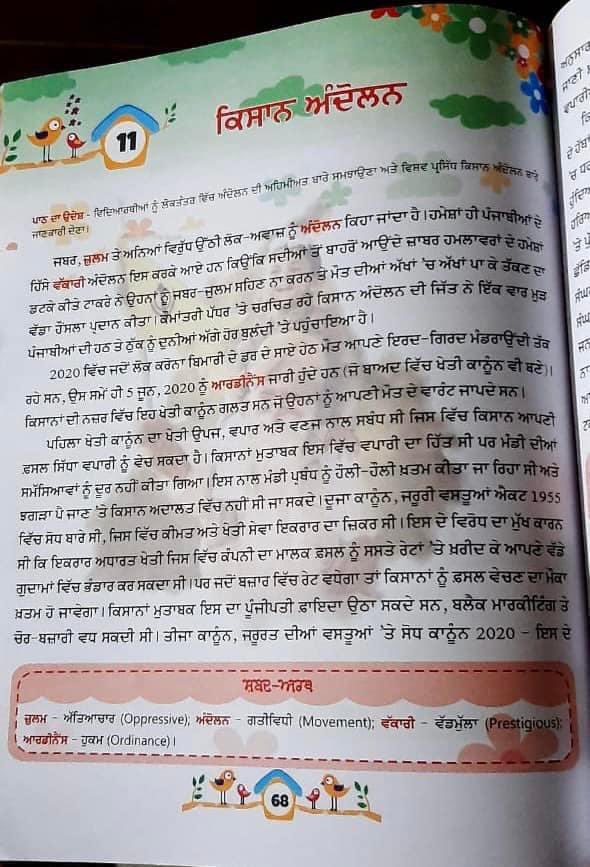 11
ਕਿਸਾਨ ਅੰਦੋਲਨ
ਪਾਠ ਦਾ ਉਦੇਸ਼ - ਵਿਦਿਆਰਥੀਆਂ ਨੂੰ ਲੋਕਤੰਤਰ ਵਿੱਚ ਅੰਦੋਲਨ ਦੀ ਅਹਿਮੀਅਤ ਬਾਰੇ ਸਮਝਾਉਣਾ ਅਤੇ ਵਿਸ਼ਵ ਪ੍ਰਸਿੱਧ ਕਿਸਾਨ ਅੰਦੋਲਨ ਬਾਰੇ
ਜਾਣਕਾਰੀ ਦੇਣਾ।
ਜਬਰ, ਜ਼ੁਲਮ ਤੇ ਅਨਿਆਂ ਵਿਰੁੱਧ ਉੱਠੀ ਲੋਕ-ਅਵਾਜ਼ ਨੂੰ ਅੰਦੋਲਨ ਕਿਹਾ ਜਾਂਦਾ ਹੈ। ਹਮੇਸ਼ਾਂ ਹੀ ਪੰਜਾਬੀਆਂ ਦੇ
ਹਿੱਸੇ ਵੱਕਾਰੀ ਅੰਦੋਲਨ ਇਸ ਕਰਕੇ ਆਏ ਹਨ ਕਿਉਂਕਿ ਸਦੀਆਂ ਤੋਂ ਬਾਹਰੋਂ ਆਉਂਦੇ ਜ਼ਾਬਰ ਹਮਲਾਵਰਾਂ ਦੇ ਹਮੇਸ਼ਾਂ
ਡਟਕੇ ਕੀਤੇ ਟਾਕਰੇ ਨੇ ਉਹਨਾਂ ਨੂੰ ਜਬਰ-ਜ਼ੁਲਮ ਸਹਿਣ ਨਾ ਕਰਨ ਤੇ ਮੌਤ ਦੀਆਂ ਅੱਖਾਂ 'ਚ ਅੱਖਾਂ ਪਾ ਕੇ ਤੱਕਣ ਦਾ
ਵੱਡਾ ਹੌਸਲਾ ਪ੍ਰਦਾਨ ਕੀਤਾ। ਕੌਮਾਂਤਰੀ ਪੱਧਰ 'ਤੇ ਚਰਚਿਤ ਰਹੇ ਕਿਸਾਨ ਅੰਦੋਲਨ ਦੀ ਜਿੱਤ ਨੇ ਇੱਕ ਵਾਰ ਮੁੜ
ਪੰਜਾਬੀਆਂ ਦੀ ਹਠ ਤੇ ਠੁੱਕ ਨੂੰ ਦੁਨੀਆਂ ਅੱਗੇ ਹੋਰ ਬੁਲੰਦੀ 'ਤੇ ਪਹੁੰਚਾਇਆ ਹੈ।
2020 ਵਿੱਚ ਜਦੋਂ ਲੋਕ ਕਰੋਨਾ ਬਿਮਾਰੀ ਦੇ ਡਰ ਦੇ ਸਾਏ ਹੇਠ ਮੌਤ ਆਪਣੇ ਇਰਦ-ਗਿਰਦ ਮੰਡਰਾਉਂਦੀ ਤੱਕ
ਰਹੇ ਸਨ, ਉਸ ਸਮੇਂ ਹੀ 5 ਜੂਨ, 2020 ਨੂੰ ਆਰਡੀਨੈਂਸ ਜਾਰੀ ਹੁੰਦੇ ਹਨ (ਜੋ ਬਾਅਦ ਵਿੱਚ ਖੇਤੀ ਕਾਨੂੰਨ ਵੀ ਬਣੇ)।
ਕਿਸਾਨਾਂ ਦੀ ਨਜ਼ਰ ਵਿੱਚ ਇਹ ਖੇਤੀ ਕਾਨੂੰਨ ਗਲਤ ਸਨ ਜੋ ਉਹਨਾਂ ਨੂੰ ਆਪਣੀ ਮੌਤ ਦੇ ਵਾਰੰਟ ਜਾਪਦੇ ਸਨ।
ਪਹਿਲਾ ਖੇਤੀ ਕਾਨੂੰਨ ਦਾ ਖੇਤੀ ਉਪਜ, ਵਪਾਰ ਅਤੇ ਵਣਜ ਨਾਲ ਸਬੰਧ ਸੀ ਜਿਸ ਵਿੱਚ ਕਿਸਾਨ ਆਪਣੀ
ਫ਼ਸਲ ਸਿੱਧਾ ਵਪਾਰੀ ਨੂੰ ਵੇਚ ਸਕਦਾ ਹੈ। ਕਿਸਾਨਾਂ ਮੁਤਾਬਕ ਇਸ ਵਿੱਚ ਵਪਾਰੀ ਦਾ ਹਿੱਤ ਸੀ ਪਰ ਮੰਡੀ ਦੀਆਂ
ਸਮੱਸਿਆਵਾਂ ਨੂੰ ਦੂਰ ਨਹੀਂ ਕੀਤਾ ਗਿਆ। ਇਸ ਨਾਲ ਮੰਡੀ ਪ੍ਰਬੰਧ ਨੂੰ ਹੌਲੀ-ਹੌਲੀ ਖ਼ਤਮ ਕੀਤਾ ਜਾ ਰਿਹਾ ਸੀ ਅਤੇ
ਝਗੜਾ ਪੈ ਜਾਣ 'ਤੇ ਕਿਸਾਨ ਅਦਾਲਤ ਵਿੱਚ ਨਹੀਂ ਸੀ ਜਾ ਸਕਦੇ। ਦੂਜਾ ਕਾਨੂੰਨ, ਜਰੂਰੀ ਵਸਤੂਆਂ ਐਕਟ 1955
ਵਿੱਚ ਸੋਧ ਬਾਰੇ ਸੀ, ਜਿਸ ਵਿੱਚ ਕੀਮਤ ਅਤੇ ਖੇਤੀ ਸੇਵਾ ਇਕਰਾਰ ਦਾ ਜ਼ਿਕਰ ਸੀ। ਇਸ ਦੇ ਵਿਰੋਧ ਦਾ ਮੁੱਖ ਕਾਰਨ
ਸੀ ਕਿ ਇਕਰਾਰ ਅਧਾਰਤ ਖੇਤੀ ਜਿਸ ਵਿੱਚ ਕੰਪਨੀ ਦਾ ਮਾਲਕ ਫ਼ਸਲ ਨੂੰ ਸਸਤੇ ਰੇਟਾਂ 'ਤੇ ਖ਼ਰੀਦ ਕੇ ਆਪਣੇ ਵੱਡੇ
ਗੁਦਾਮਾਂ ਵਿੱਚ ਭੰਡਾਰ ਕਰ ਸਕਦਾ ਸੀ। ਪਰ ਜਦੋਂ ਬਜ਼ਾਰ ਵਿੱਚ ਰੇਟ ਵਧੇਗਾ ਤਾਂ ਕਿਸਾਨਾਂ ਨੂੰ ਫ਼ਸਲ ਵੇਚਣ ਦਾ ਮੌਕਾ
ਖ਼ਤਮ ਹੋ ਜਾਵੇਗਾ। ਕਿਸਾਨਾਂ ਮੁਤਾਬਕ ਇਸ ਦਾ ਪੂੰਜੀਪਤੀ ਫ਼ਾਇਦਾ ਉਠਾ ਸਕਦੇ ਸਨ, ਬਲੈਕ ਮਾਰਕੀਟਿੰਗ ਤੇ
ਚੋਰ-ਬਜ਼ਾਰੀ ਵਧ ਸਕਦੀ ਸੀ। ਤੀਜਾ ਕਾਨੂੰਨ, ਜਰੂਰਤ ਦੀਆਂ ਵਸਤੂਆਂ 'ਤੇ ਸੋਧ ਕਾਨੂੰਨ 2020 - ਇਸ ਦੇ
ਸ਼ਬਦ-ਅਰਥ
ਜ਼ੁਲਮ - ਅੱਤਿਆਚਾਰ (Oppressive); ਅੰਦੋਲਨ - ਗਤੀਵਿਧੀ (Movement); ਵੱਕਾਰੀ - ਵੱਡਮੁੱਲਾ (Prestigious);
ਆਰਡੀਨੈਂਸ - ਹੁਕਮ (Ordinance)।
68